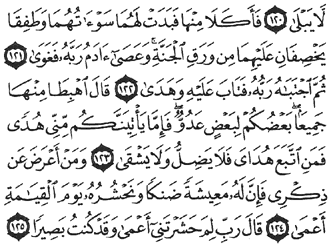 لَّا يَبْلَىٰ ١٢٠ فَأَكَلَا مِنْهَا فَبَدَتْ لَهُمَا سَوْءَٰتُهُمَا وَطَفِقَا
يَخْصِفَانِ عَلَيْهِمَا مِن وَرَقِ ٱلْجَنَّةِ ۚ وَعَصَىٰٓ ءَادَمُ رَبَّهُۥ فَغَوَىٰ ١٢١
ثُمَّ ٱجْتَبَٰهُ رَبُّهُۥ فَتَابَ عَلَيْهِ وَهَدَىٰ ١٢٢ قَالَ ٱهْبِطَا مِنْهَا
جَمِيعًۢا ۖ بَعْضُكُمْ لِبَعْضٍ عَدُوٌّ ۖ فَإِمَّا يَأْتِيَنَّكُم مِّنِّى هُدًى
فَمَنِ ٱتَّبَعَ هُدَاىَ فَلَا يَضِلُّ وَلَا يَشْقَىٰ ١٢٣ وَمَنْ أَعْرَضَ عَن
ذِكْرِى فَإِنَّ لَهُۥ مَعِيشَةً ضَنكًا وَنَحْشُرُهُۥ يَوْمَ ٱلْقِيَٰمَةِ
أَعْمَىٰ ١٢٤ قَالَ رَبِّ لِمَ حَشَرْتَنِىٓ أَعْمَىٰ وَقَدْ كُنتُ بَصِيرًا ١٢٥